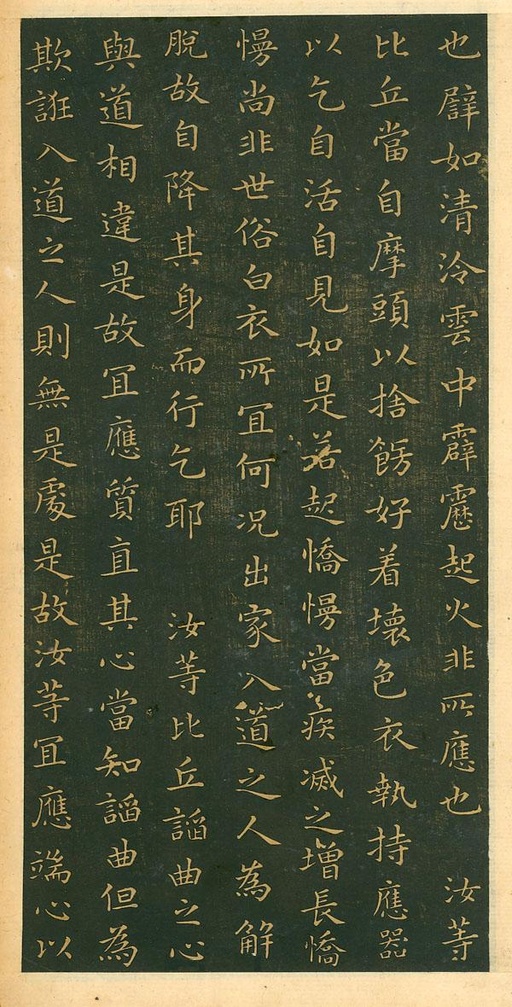 也譬如清泠雲中霹靂起火非所應也　汝等
比丘當自摩頭以捨餝好着壞色衣執持應器
以乞自活自見如是若起憍慢當疾滅之增長憍
慢尚非世俗白衣所宜何況出家入道之人為解
脫故自降其身而行乞耶　汝等比丘謟曲之心
與道相違是故宜應質直其心當知謟曲但為
欺誑入道之人則無是處是故汝等宜應端心以